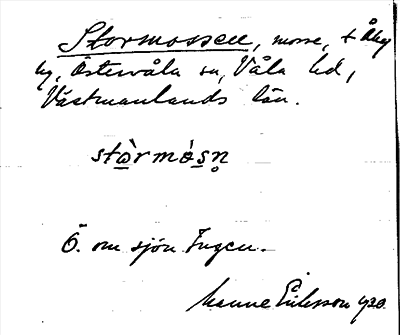 Stormossen, mosse, t. Åby
by, Östervåla sn, Våla hd,
Västmanlands län.
stòrmósn̥
Ö. om sjön Ingen.
Manne Eriksson 1930.